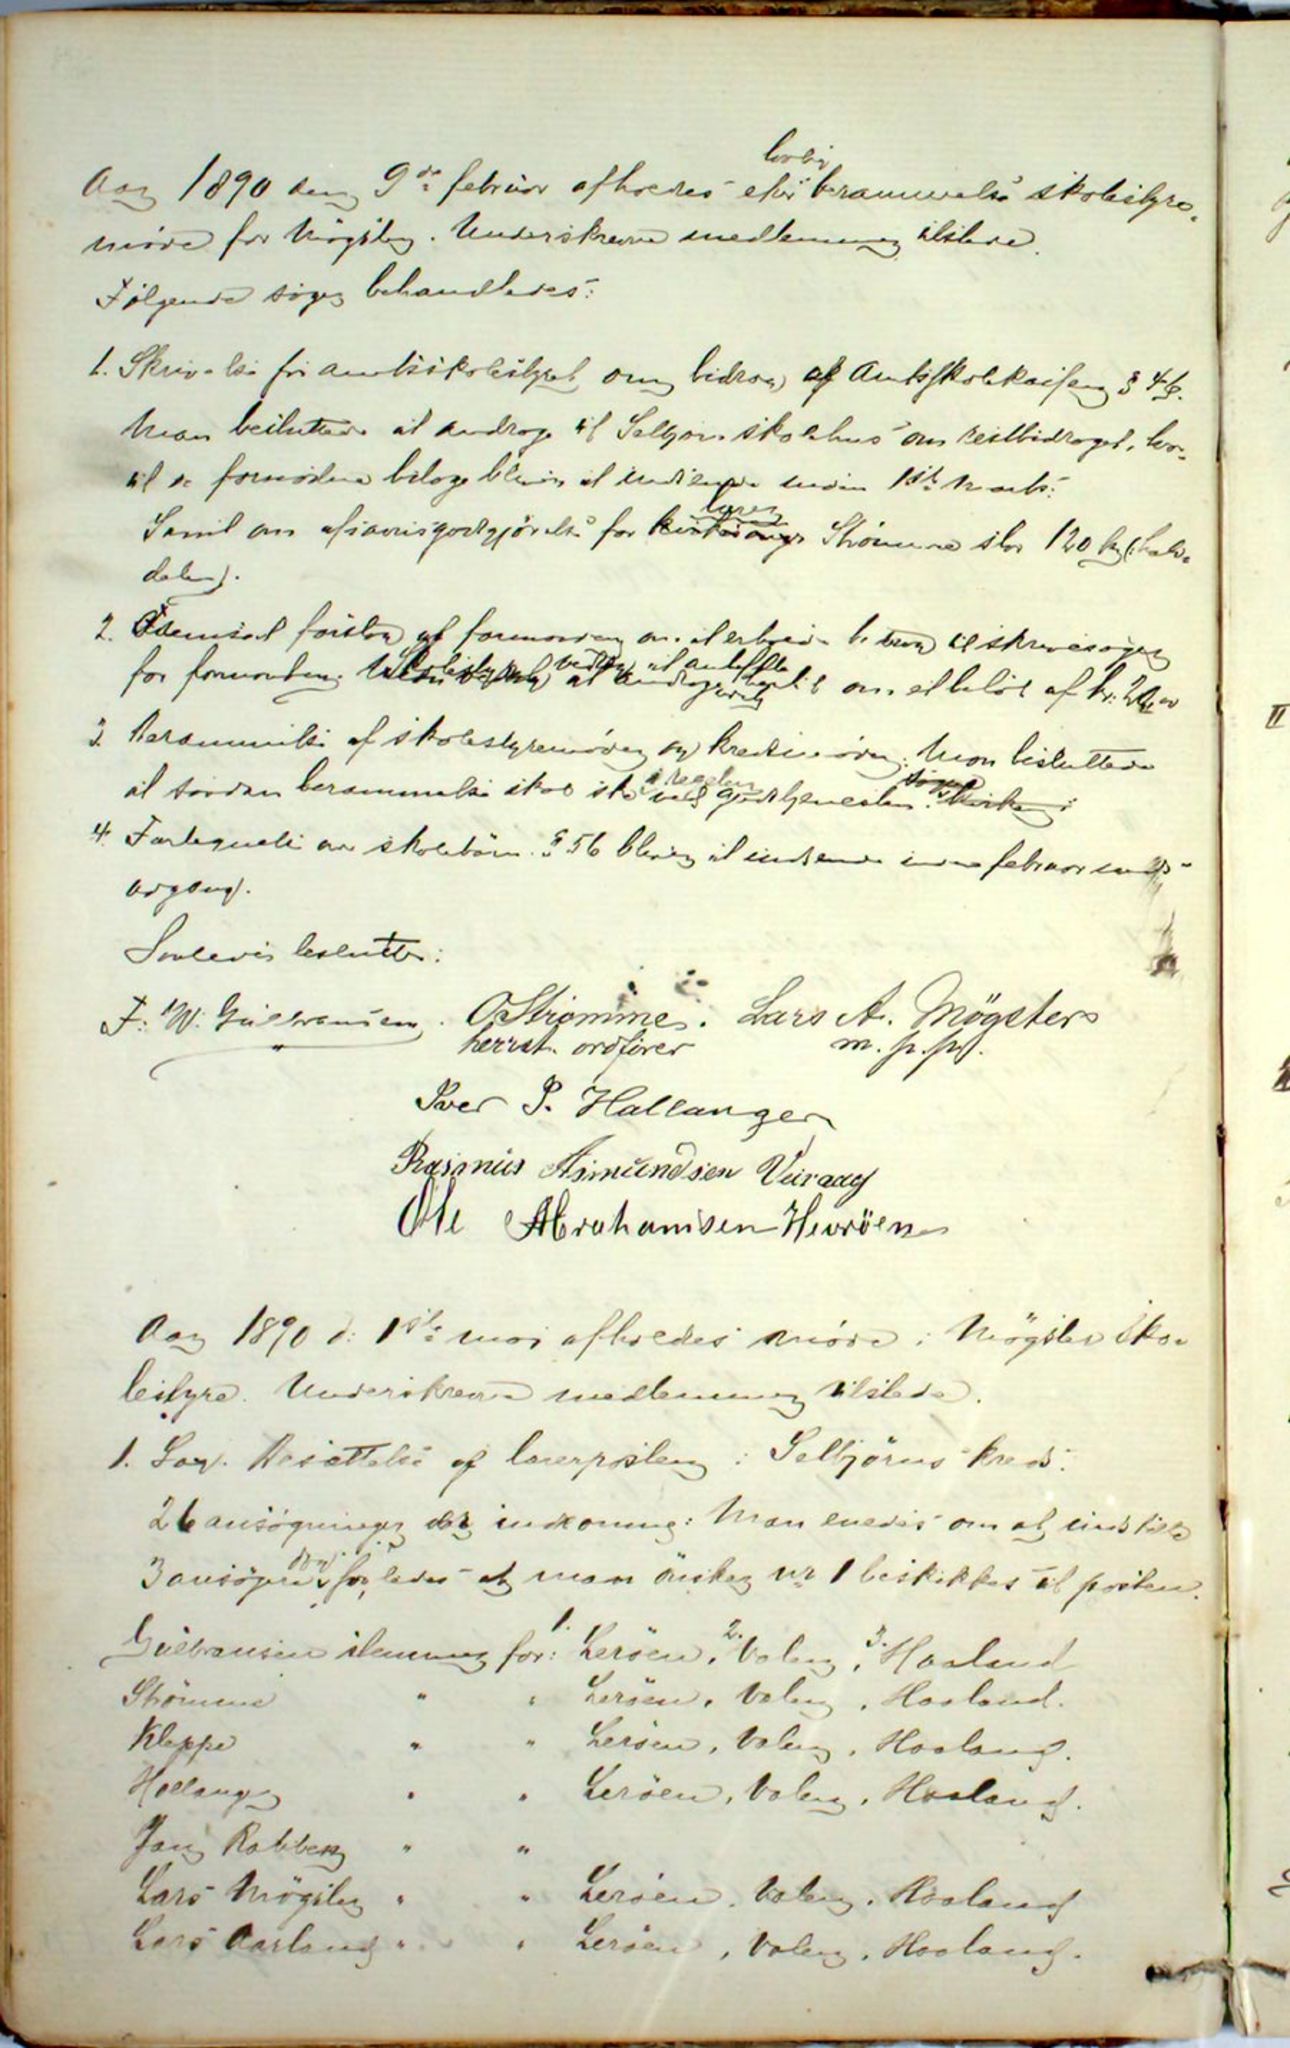 Aar 1890 den 9de februar afholdes efter lovlig berammelse skolestyre-
møde for Møgster. Underskrevne medlemmer tilstede.
Følgende sager behandledes:
1. Skrivelse fra amtsskolestyret om bidrag af Amtsskolekassen § 4
Man besluttede at andrage til Selbjørn skolehus om restbidraget, hvor-
til de fornødne bilage bliver at indsende inden 1ste marts.
Samt om afsavnsgodtgjørelse for Strømme stor 120 kr (halv-
delen).
2. Fremsat forslag af formanden om at erholde betaling til skrivesager
for formanden. at andrage om et beløb af kr.
3. Berammelse af skolestyremøder og kredsmøder. Man besluttede
at saadan berammelse skal ske i regelen ved gudstjenesten
4. Fortegnelse over skolebørn § 56 bliver at indsende inden februar
udgang.
Saaledes besluttet:
F. W. Gulbransen. O Strømme. Lars A. Møgster
herrsk. ordfører m. p. p.
Iver P. Hallanger
Rasmus Asmundsen Veivaag
Ole Abrahamsen Hevrøen
Aar 1890 d. 1ste mai afholdes møde i Møgster sko-
lestyre. Underskrevne medlemmer tilstede.
1. Sag. Besættelse af lærerposten i Selbjørns kreds.
26 ansøgninger er indkomne. Man enedes om at indstille
3 ansøgere saaledes at man ønsker nr 1 beskikket til posten.
Gulbransen stemmer for: 1. Lerøen, 2. Valen, 3. Haaland
Strømme " " Lerøen, Valen, Haaland.
Kleppe " " Lerøen, Valen, Haaland.
Hallanger " " Lerøen, Valen, Haaland.
Jan Rabben " "
Lars Møgster " " Lerøen, Valen, Haaland
Lars Aarland " " Lerøen, Valen, Haaland.